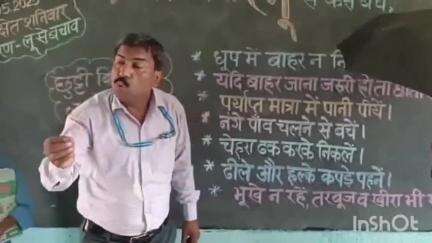 से कैसे बचें.
.05.2025
शनिवार
लू से बचाव
छुट्टी
* धूप में बाहर न
* यदि बाहर जाना जरूरी होता
* पर्याप्त मात्रा में पानी पियें।
* नंगे पाँव चलने से बचें।
* चेहरा ढक करके निकलें।
* ढीले और हल्के कपड़े पहनें।
* भूखे न रहें, तरबूज व खीरा भी
InShOt